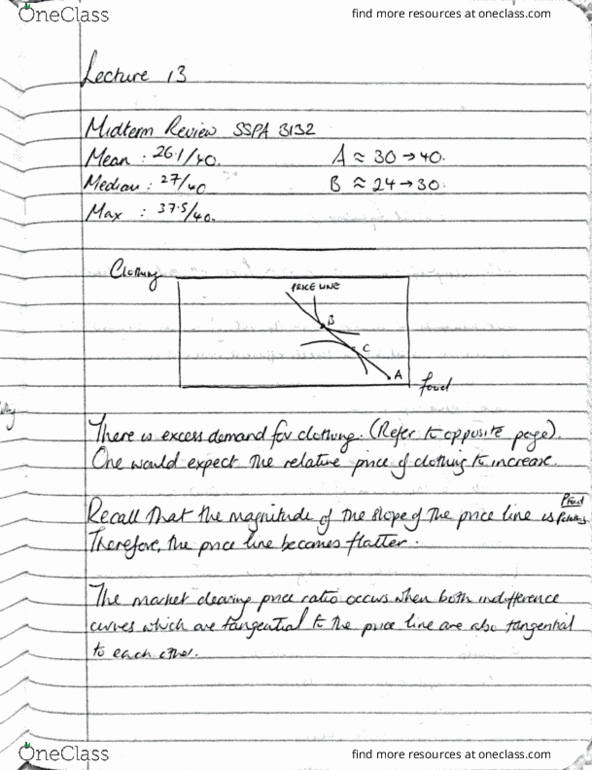 OneClass
find more resources at oneclass.com
Lecture 13
Midterm Review SSPA 3132
Mean : 26.1/40.
A ≈ 30 → 40.
Median : 27/40
B ≈ 24 → 30.
Max : 37.5/40.
Clothing
PRICE LINE
B
C
A
Food
There is excess demand for clothing. (Refer to opposite page).
One would expect the relative price of clothing to increase.
Recall that the magnitude of the slope of the price line is Pfood
Therefore, the price line becomes flatter.
The market clearing price ratio occurs when both indifference
curves which are tangential to the price line are also tangential
to each other.
OneClass
find more resources at oneclass.com